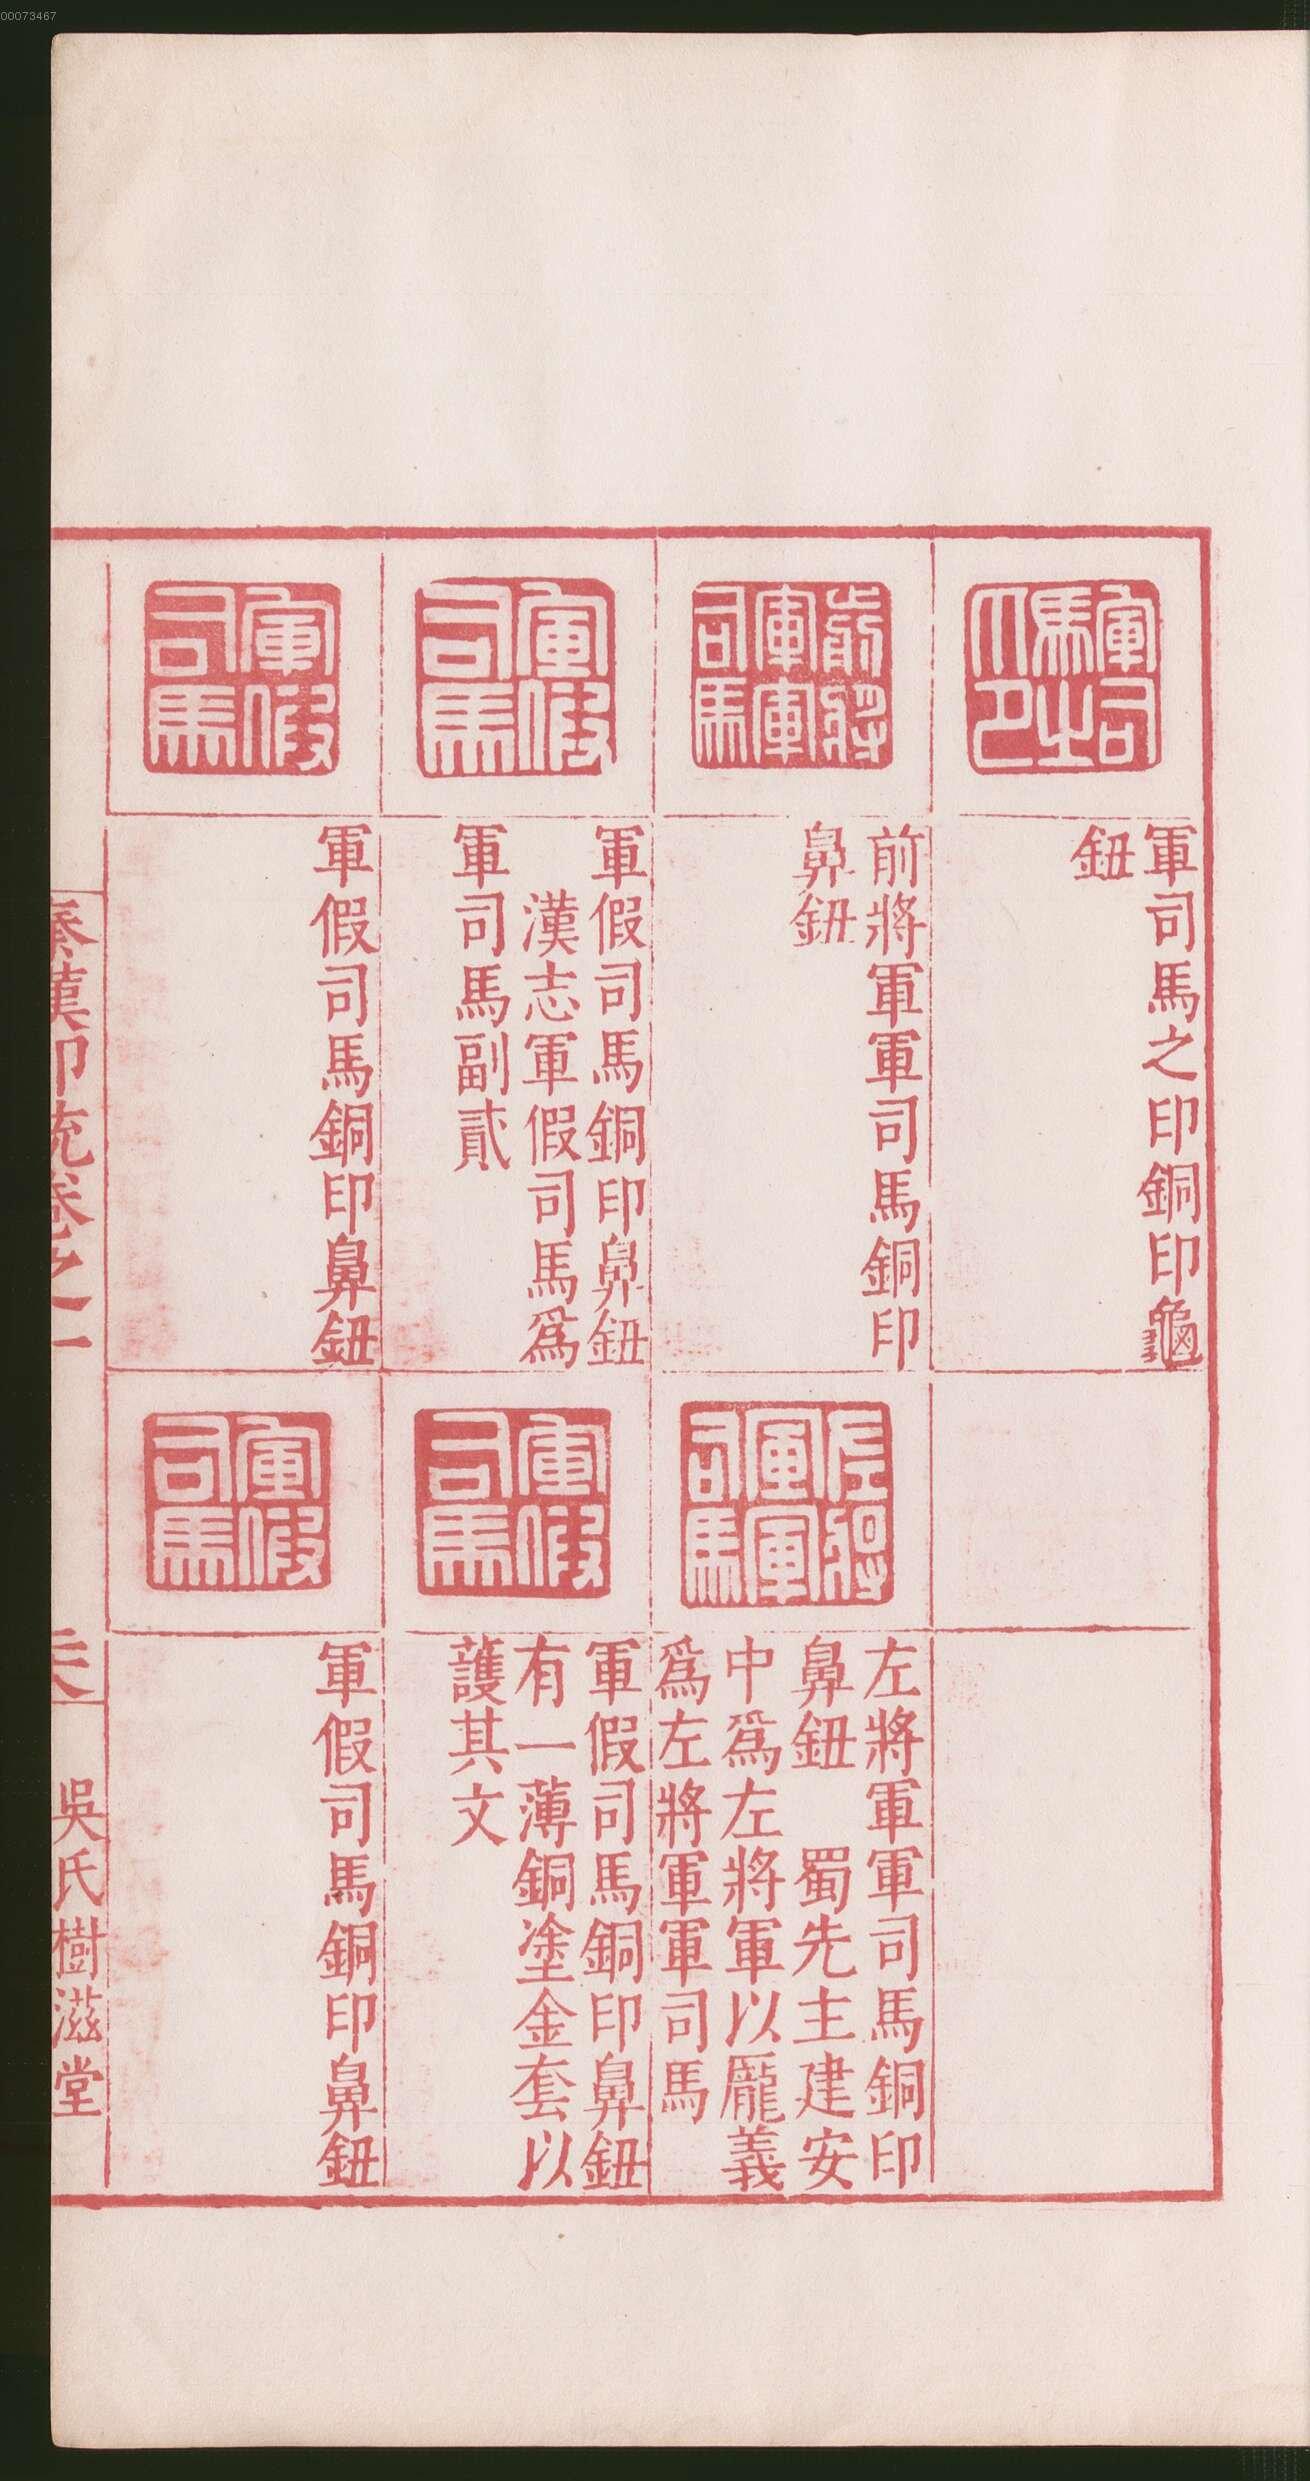 00073467
軍司馬之印
軍司馬之印銅印龜
鈕
前將軍軍司馬
前將軍軍司馬銅印
鼻鈕
左將軍軍司馬
左將軍軍司馬銅印
鼻鈕　蜀先主建安
中爲左將軍以龐義
爲左將軍軍司馬
軍假司馬
軍假司馬銅印鼻鈕
漢志軍假司馬爲
軍司馬副貳
軍假司馬
軍假司馬銅印鼻鈕
有一薄銅塗金套以
護其文
軍假司馬
軍假司馬銅印鼻鈕
軍假司馬
軍假司馬銅印鼻鈕
秦漢印統卷之一
吳氏樹滋堂